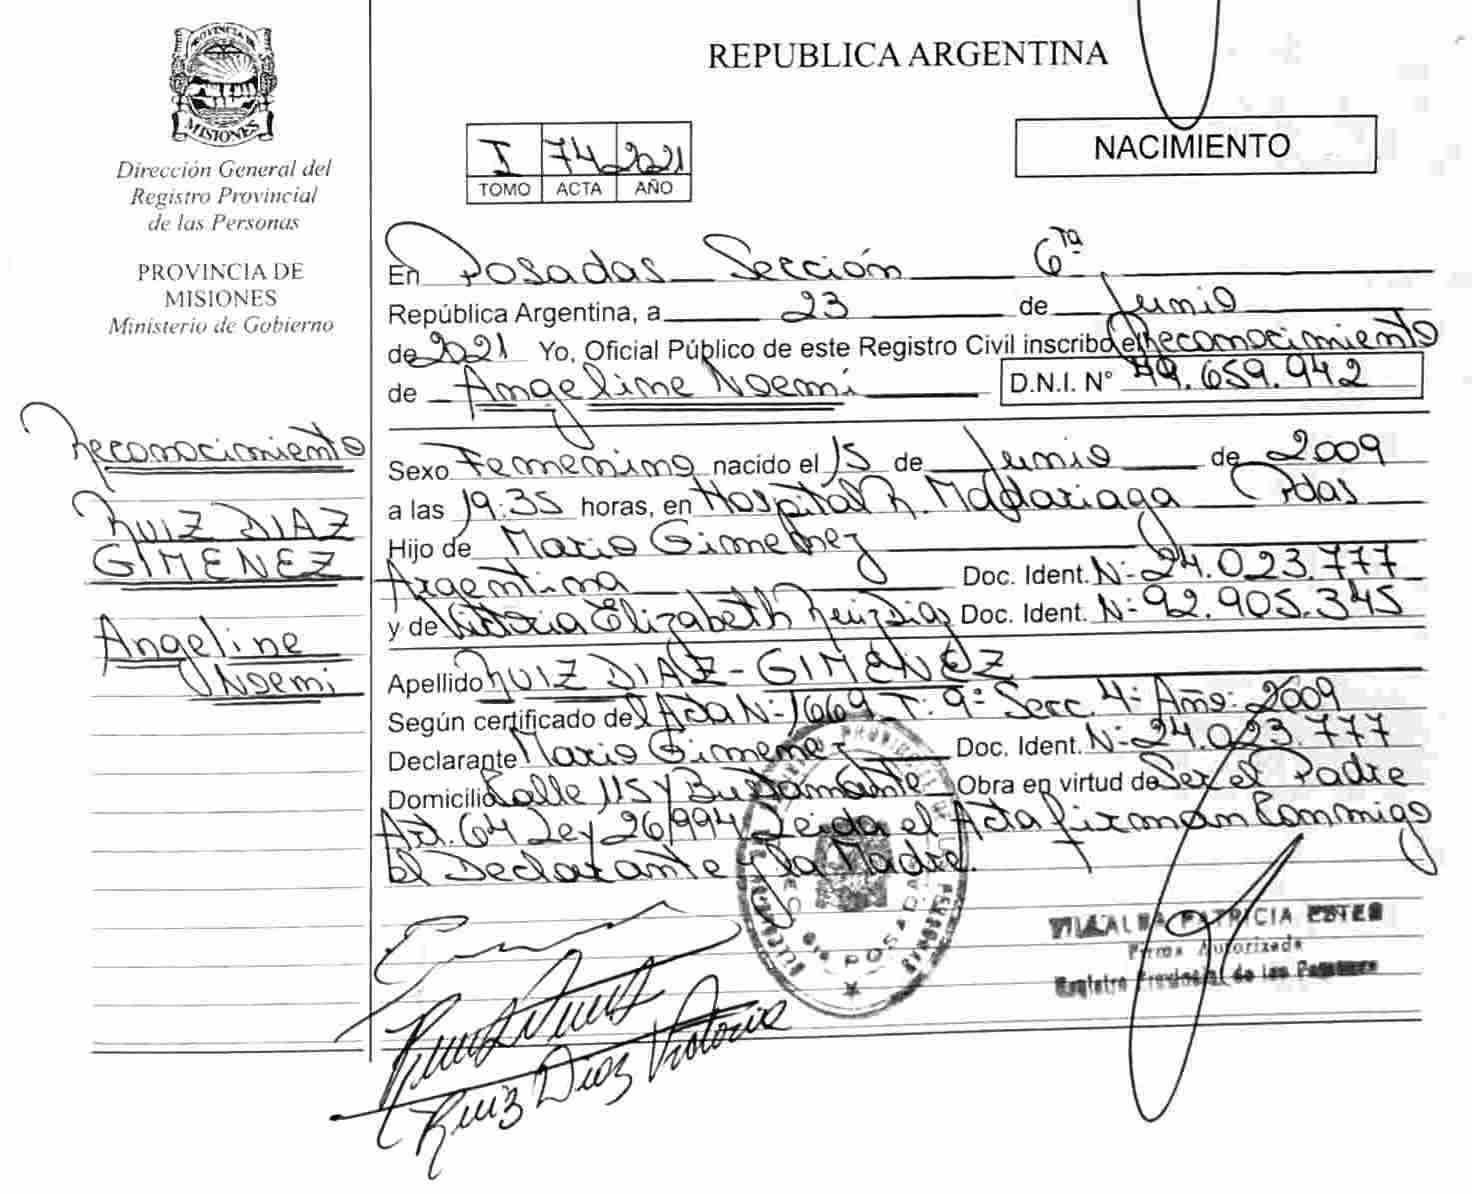 PROVINCIA DE
MISIONES
Dirección General del
Registro Provincial
de las Personas
PROVINCIA DE
MISIONES
Ministerio de Gobierno
REPUBLICA ARGENTINA
I 74 2021
TOMO ACTA AÑO
NACIMIENTO
En Posadas Sección 6ta
República Argentina, a 23 de Junio
de 2021 Yo, Oficial Público de este Registro Civil inscribo el Reconocimiento
de Angeline Noemi D.N.I. N° 49.659.942
Reconocimiento
RUIZ DIAZ
GIMENEZ
Angeline
Noemi
Sexo Femenino nacido el 15 de Junio de 2009
a las 19:35 horas, en Hospital R. Madariaga Pdas
Hijo de Mario Gimenez
Argentina Doc. Ident. N= 24.023.777
y de Victoria Elizabeth Ruiz Diaz Doc. Ident. N= 92.905.345
Apellido RUIZ DIAZ - GIMENEZ
Según certificado del Acta N= 1669 T: 9= Secc. 4= Año: 2009
Declarante Mario Gimenez Doc. Ident. N= 24.023.777
Domicilio Calle 115 y Bustamante Obra en virtud de Ser el Padre
Art. 64 Ley 26994 Leida el Acta firman Conmigo
El Declarante y la Madre.
POSADAS
VILLALBA PATRICIA ESTER
Firma Autorizada
Registro Provincial de las Personas
Ruiz Diaz Victoria